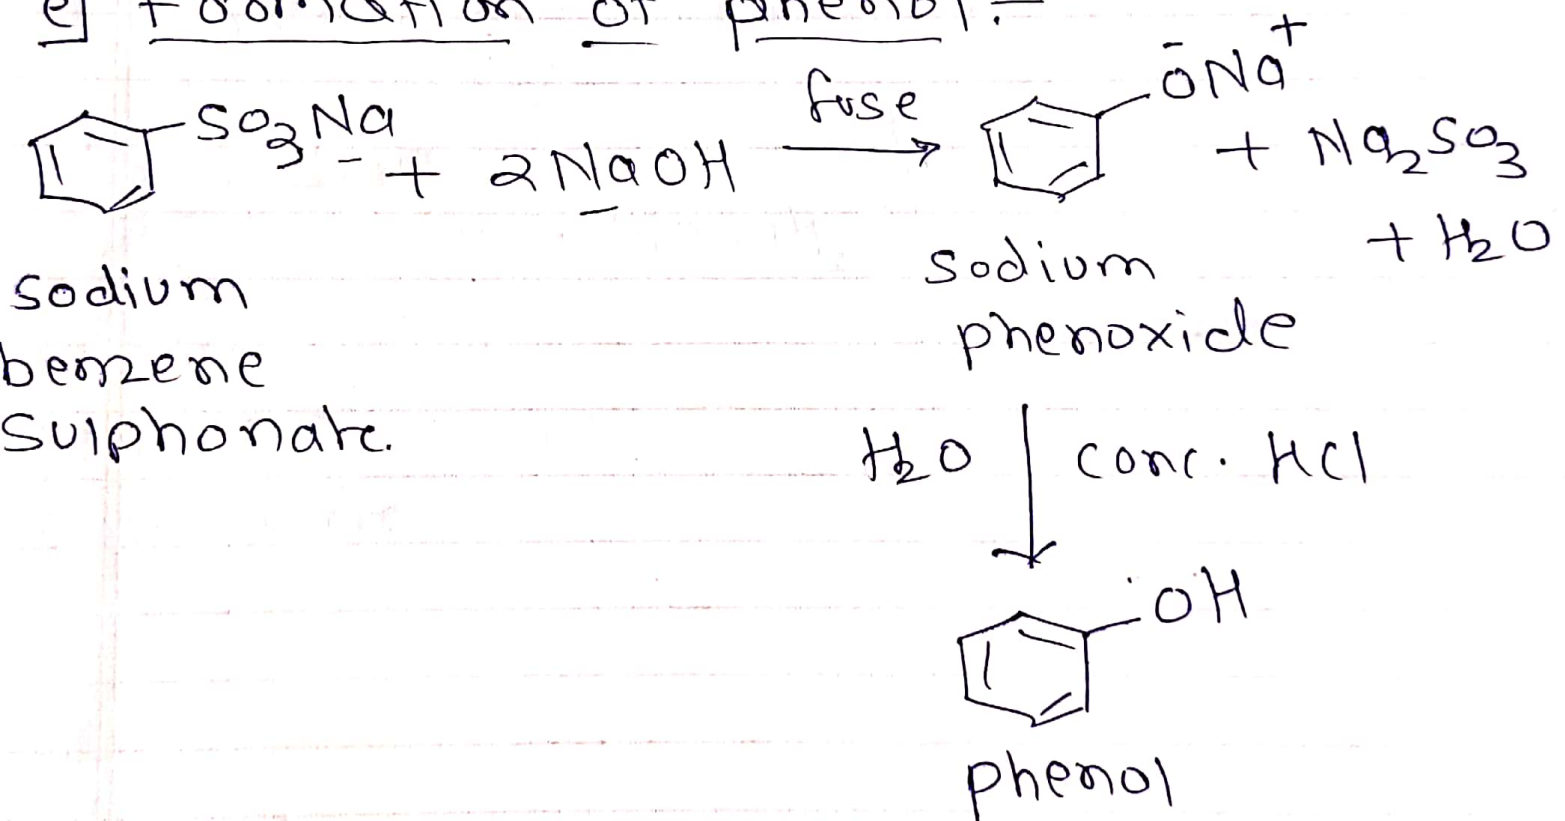 e) Formation of phenol :-
SO₃Na + 2NaOH fuse → ŌNa⁺ + Na₂SO₃
+ H₂O
sodium
benzene
sulphonate.
sodium
phenoxide
H₂O conc. HCl
OH
phenol